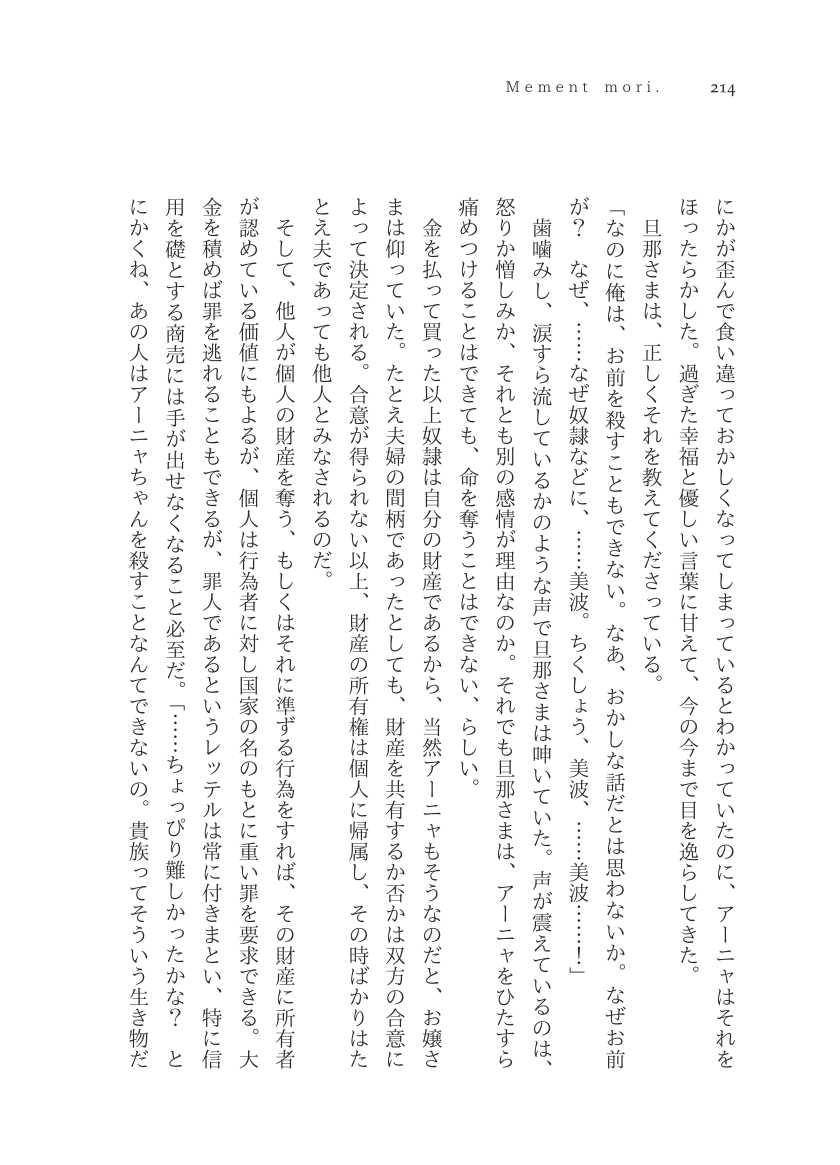 Mement mori.
214
にかが歪んで食い違っておかしくなってしまっているとわかっていたのに、アーニャはそれを
ほったらかした。過ぎた幸福と優しい言葉に甘えて、今の今まで目を逸らしてきた。
　旦那さまは、正しくそれを教えてくださっている。
「なのに俺は、お前を殺すこともできない。なあ、おかしな話だとは思わないか。なぜお前
が？　なぜ、……なぜ奴隷などに、……美波。ちくしょう、美波、……美波……！」
　歯噛みし、涙すら流しているかのような声で旦那さまは呻いていた。声が震えているのは、
怒りか憎しみか、それとも別の感情が理由なのか。それでも旦那さまは、アーニャをひたすら
痛めつけることはできても、命を奪うことはできない、らしい。
　金を払って買った以上奴隷は自分の財産であるから、当然アーニャもそうなのだと、お嬢さ
まは仰っていた。たとえ夫婦の間柄であったとしても、財産を共有するか否かは双方の合意に
よって決定される。合意が得られない以上、財産の所有権は個人に帰属し、その時ばかりはた
とえ夫であっても他人とみなされるのだ。
　そして、他人が個人の財産を奪う、もしくはそれに準ずる行為をすれば、その財産に所有者
が認めている価値にもよるが、個人は行為者に対し国家の名のもとに重い罪を要求できる。大
金を積めば罪を逃れることもできるが、罪人であるというレッテルは常に付きまとい、特に信
用を礎とする商売には手が出せなくなること必至だ。「……ちょっぴり難しかったかな？　と
にかくね、あの人はアーニャちゃんを殺すことなんてできないの。貴族ってそういう生き物だ